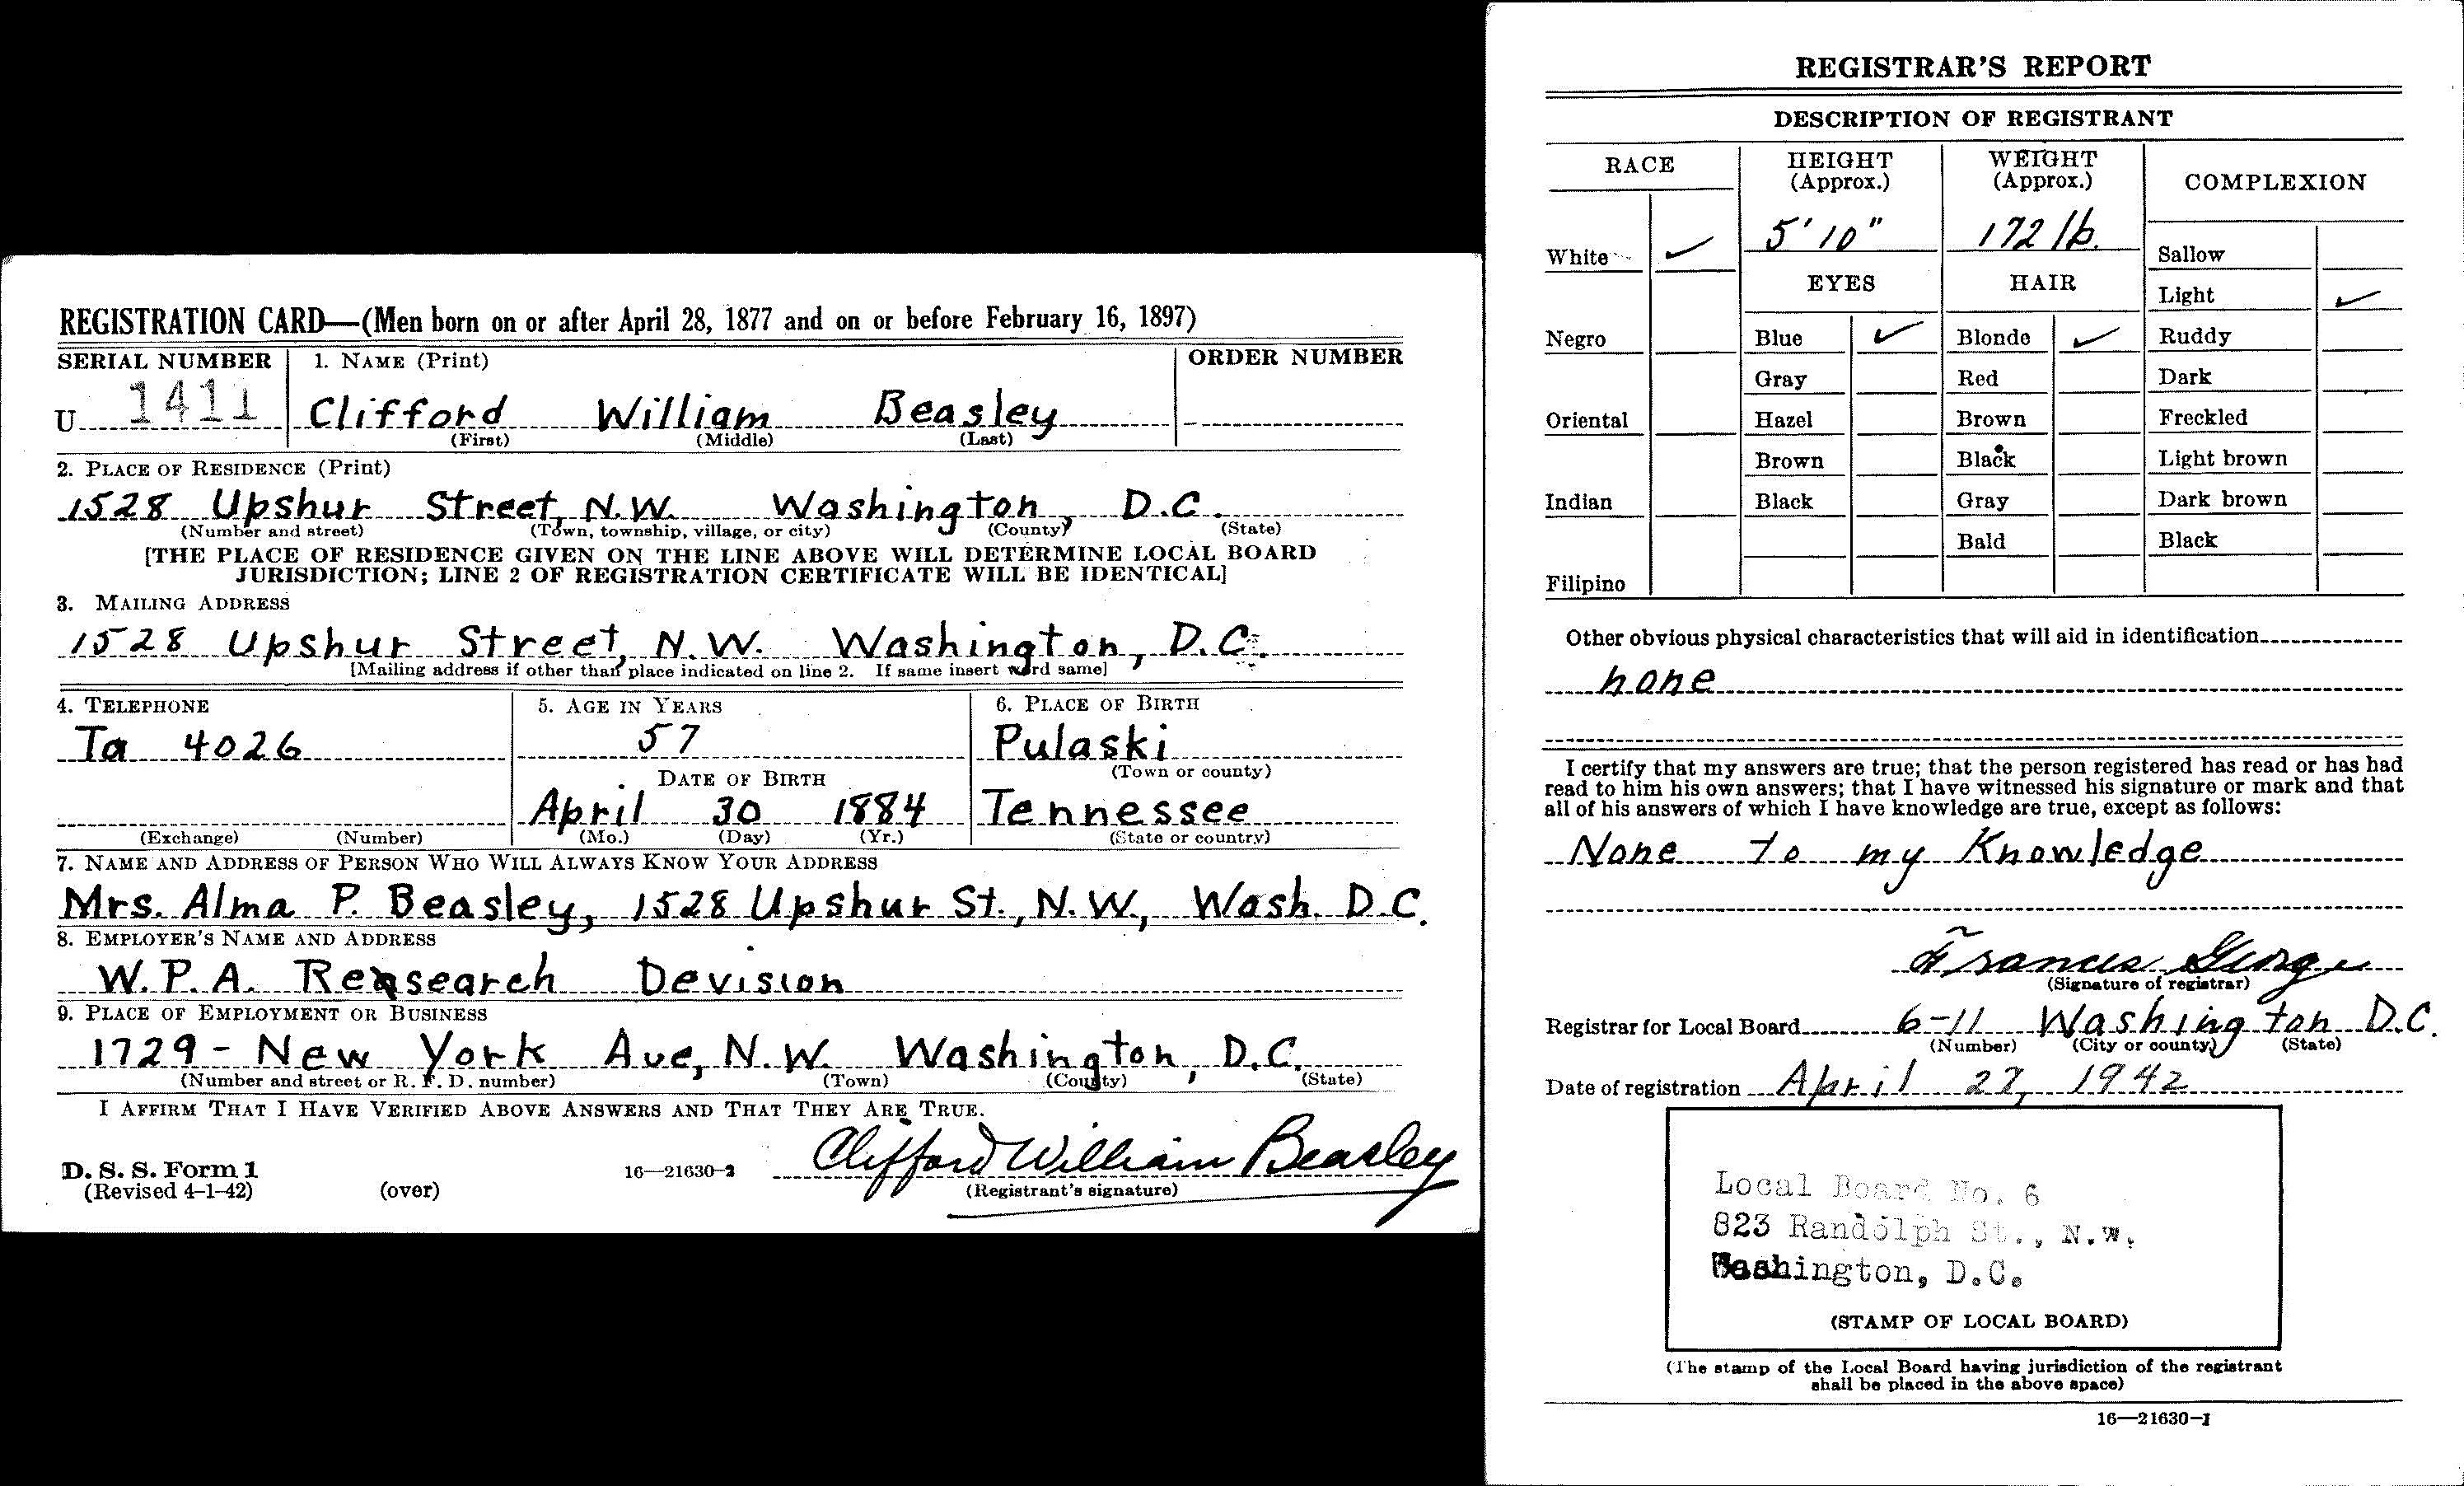 REGISTRATION CARD—(Men born on or after April 28, 1877 and on or before February 16, 1897)
SERIAL NUMBER 1. NAME (Print) ORDER NUMBER
U 1411 Clifford William Beasley
(First) (Middle) (Last)
2. PLACE OF RESIDENCE (Print)
1528 Upshur Street, N.W. Washington, D.C.
(Number and street) (Town, township, village, or city) (County) (State)
[THE PLACE OF RESIDENCE GIVEN ON THE LINE ABOVE WILL DETERMINE LOCAL BOARD
JURISDICTION; LINE 2 OF REGISTRATION CERTIFICATE WILL BE IDENTICAL]
3. MAILING ADDRESS
1528 Upshur Street, N.W. Washington, D.C.
[Mailing address if other than place indicated on line 2. If same insert word same]
4. TELEPHONE 5. AGE IN YEARS 6. PLACE OF BIRTH
Ta 4026 57 Pulaski
(Town or county)
DATE OF BIRTH
April 30 1884 Tennessee
(Exchange) (Number) (Mo.) (Day) (Yr.) (State or country)
7. NAME AND ADDRESS OF PERSON WHO WILL ALWAYS KNOW YOUR ADDRESS
Mrs. Alma P. Beasley, 1528 Upshur St., N.W., Wash. D.C.
8. EMPLOYER'S NAME AND ADDRESS
W.P.A. Reasearch Devision
9. PLACE OF EMPLOYMENT OR BUSINESS
1729 - New York Ave, N.W. Washington, D.C.
(Number and street or R. F. D. number) (Town) (County) (State)
I AFFIRM THAT I HAVE VERIFIED ABOVE ANSWERS AND THAT THEY ARE TRUE.
Clifford William Beasley
D. S. S. Form 1 16—21630-2
(Revised 4-1-42) (over) (Registrant's signature)
REGISTRAR'S REPORT
DESCRIPTION OF REGISTRANT
RACE HEIGHT (Approx.) WEIGHT (Approx.) COMPLEXION
5' 10" 172 lb.
White ✓ Sallow
EYES HAIR
Light ✓
Negro Blue ✓ Blonde ✓ Ruddy
Gray Red Dark
Oriental Hazel Brown Freckled
Brown Black Light brown
Indian Black Gray Dark brown
Bald Black
Filipino
Other obvious physical characteristics that will aid in identification
none
I certify that my answers are true; that the person registered has read or has had
read to him his own answers; that I have witnessed his signature or mark and that
all of his answers of which I have knowledge are true, except as follows:
None to my Knowledge
Francis George
(Signature of registrar)
Registrar for Local Board 6-11 Washington D.C.
(Number) (City or county) (State)
Date of registration April 27, 1942
Local Board No. 6
823 Randolph St., N.W.
Washington, D.C.
(STAMP OF LOCAL BOARD)
(The stamp of the Local Board having jurisdiction of the registrant
shall be placed in the above space)
16—21630-1